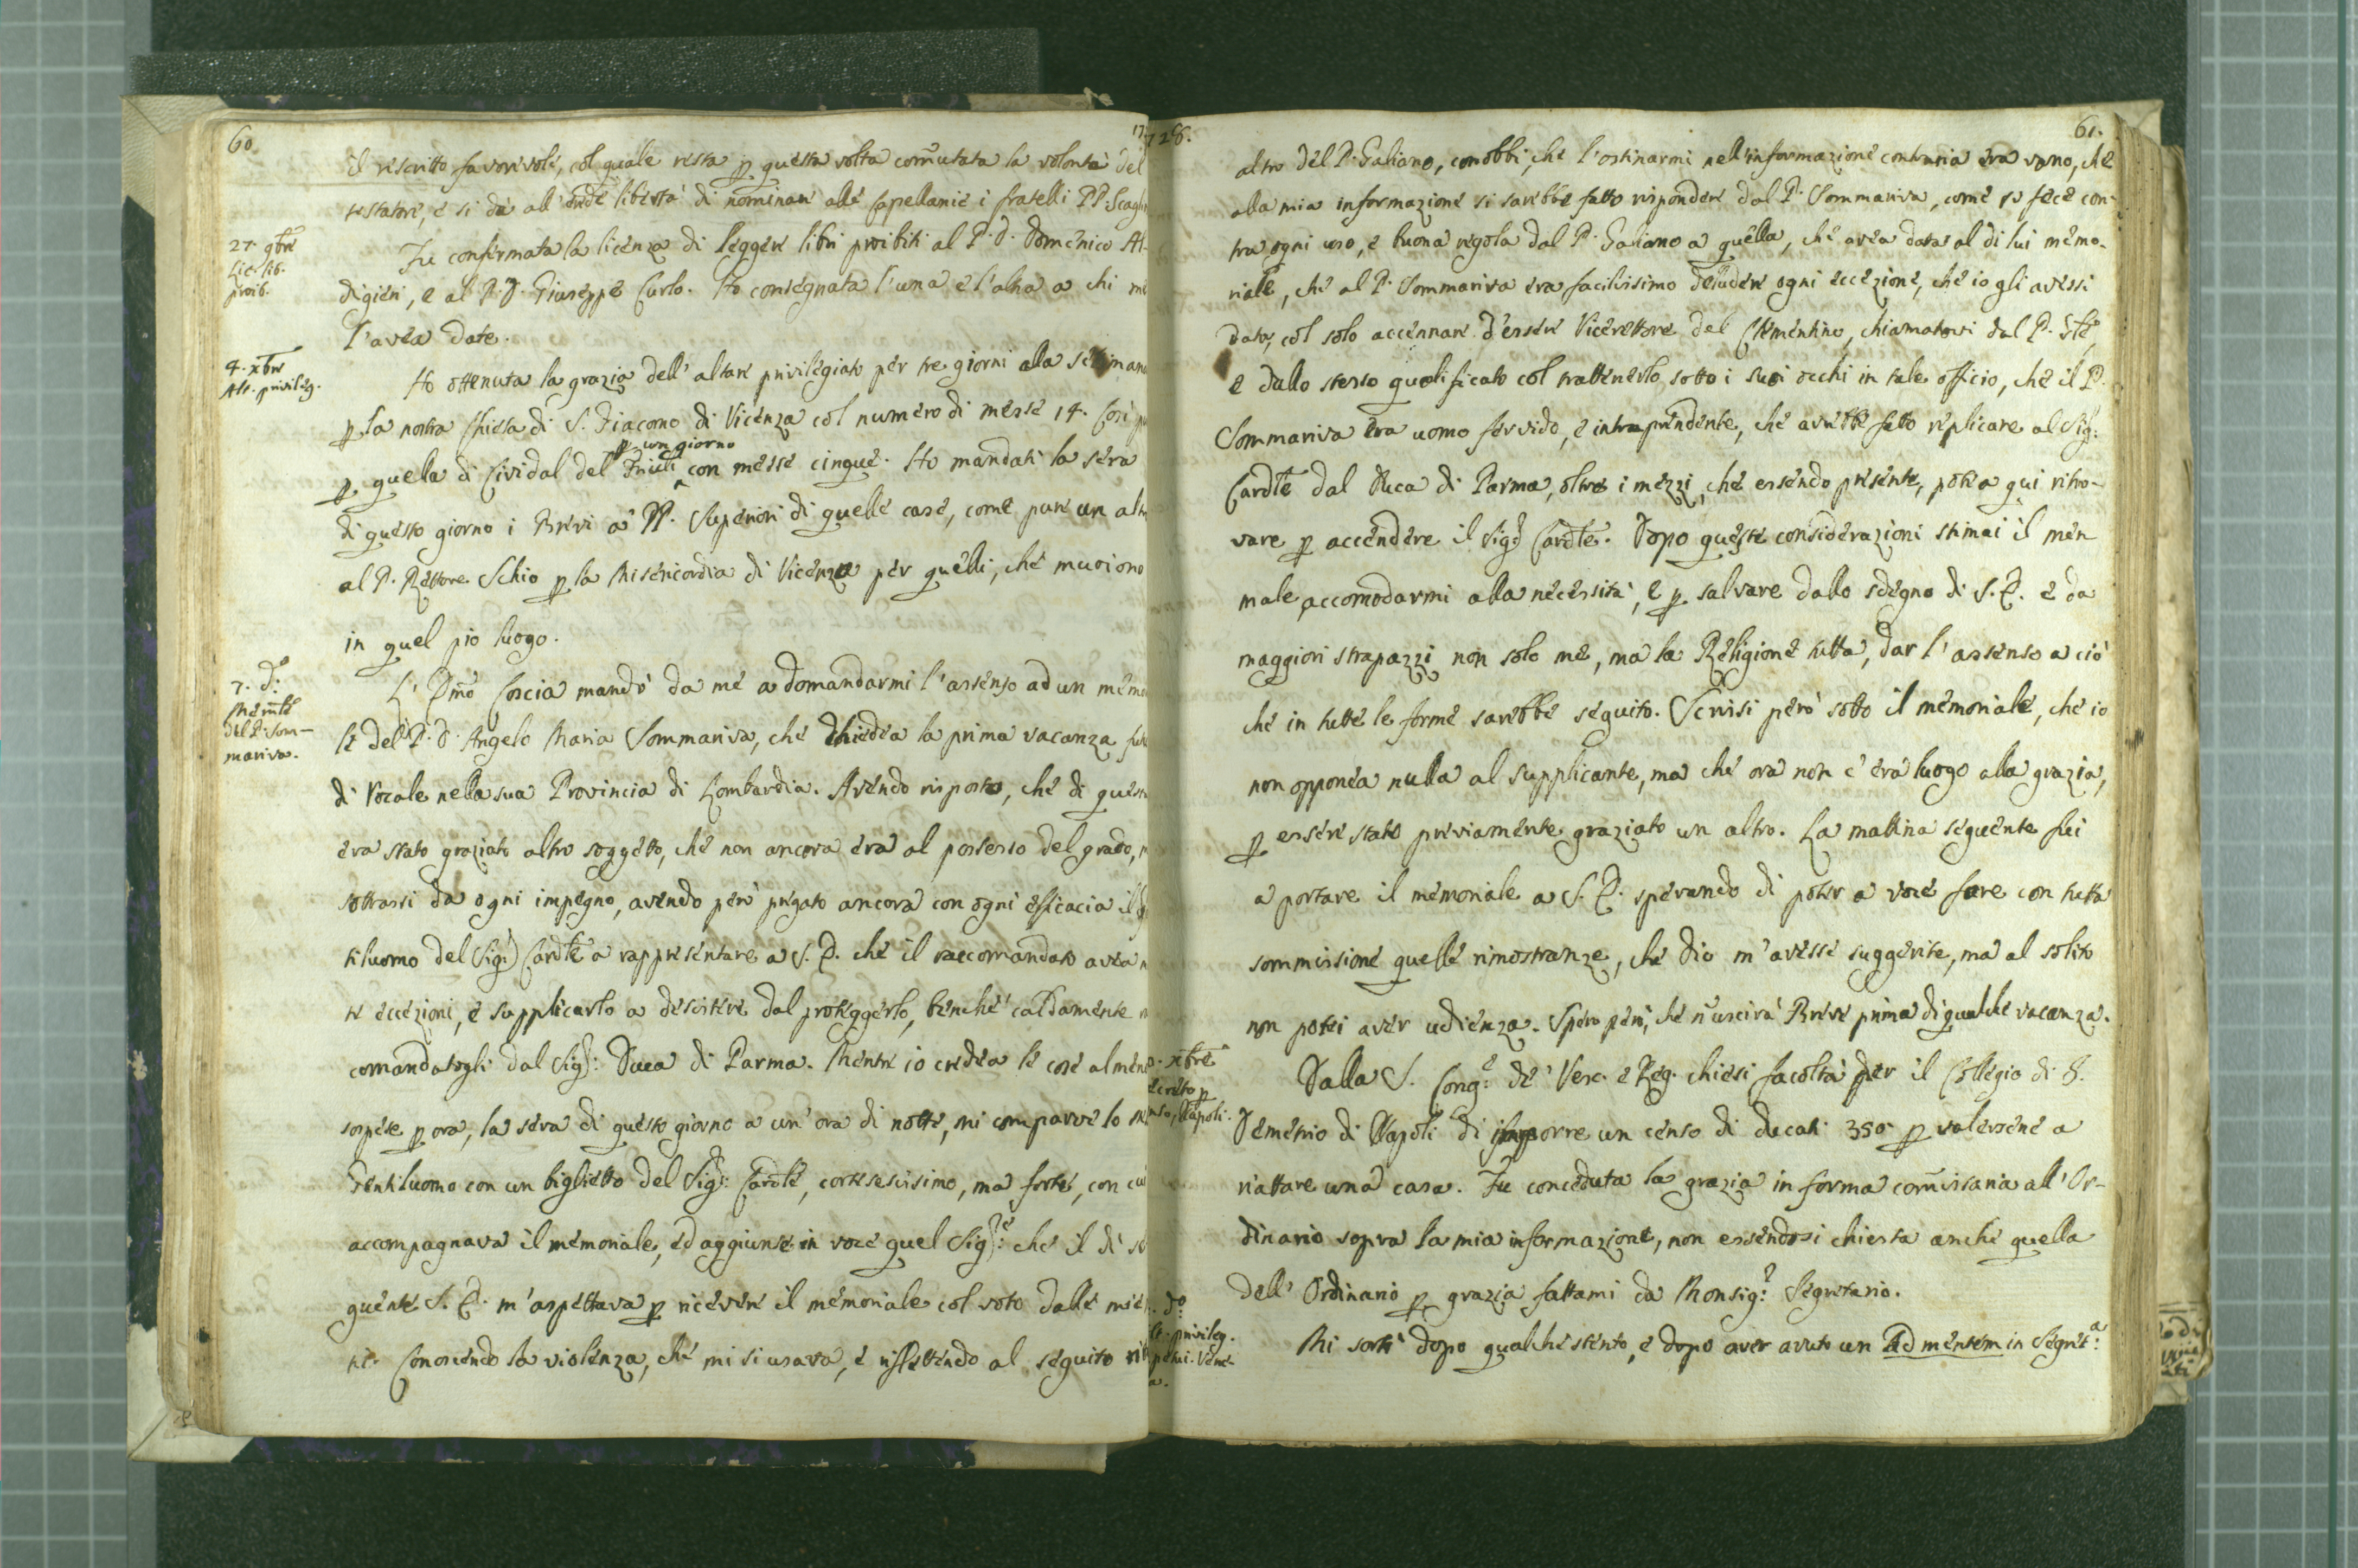 60.
17
il rescritto favorevole, col quale resta p questa volta com̃utata la volontà del
testatore, e si dà all' ordẽ libertà di nominare alle Capellanie i fratelli PP. Scagli
27. 9bre
Lic. lib.
proib.
Fu confermata la licenza di leggere libri proibiti al P. D. Domenico At-
digieri, e al P. D. Giuseppe Curlo. Ho consegnata l'una e l'altra a chi me
l'avea date.
4. xbre
Alt. privileg.
Ho ottenuta la grazia dell' altare privilegiato per tre giorni alla settimana
p la nostra Chiesa di S. Giacomo di Vicenza col numero di messe 14. Così p
p un giorno
p quella di Cividal del Friuli con messe cinque. Ho mandati la sera
di questo giorno i Brevi a' PP. Superiori di quelle case, come pure un alt
al P. Rettore Schio p la Misericordia di Vicenza per quelli, che muoiono
in quel pio luogo.
7. do
Memle
del P. Som-
mariva.
L' Emo Coscia mandò da me a domandarmi l'assenso ad un memo
le del P. D. Angelo Maria Sommariva, che chiedea la prima vacanza
di Vocale nella sua Provincia di Lombardia. Avendo risposto, che di quest
era stato graziato altro soggetto, che non ancora era al possesso del grado,
sottrassi da ogni impegno, avendo però pregato ancora con ogni efficacia il
tiluomo del Sigr Cardle a rappresentare a S. E. che il raccomandato avea
te eccezioni, e supplicarlo a desistere dal proteggerlo, benchè caldamente
comandatogli dal Sigr: Duca di Parma. Mentre io credea le cose almen
sospese p ora, la sera di questo giorno a un' ora di notte, mi comparve lo
Gentiluomo con un biglietto del Sigr: Cardle, cortesescisimo, ma forte, con cu
accompagnava il memoriale, ed aggiunse in voce quel Sigre: che il dì se
guente S. E. m'aspettava p ricevere il memoriale col voto dalle mie
ni. Conoscendo la violenza, che mi si usava, e riflettendo al seguito
728.
61.
altro del P. Galiano, conobbi, che l'ostinarmi nell'informazione contraria era vano, che
alla mia informazione si sarebbe fatto rispondere dal P. Sommariva, come si fece con-
tra ogni uso, e buona regola dal P. Galiano a quella, che avea data al di lui memo-
riale, che al P. Sommariva era facilissimo deludere ogni eccezione, che io gli avessi
data, col solo accennare d'essere Vicerettore del Clementino, chiamatovi dal P.
e dallo stesso qualificato col trattenerlo sotto i suoi occhi in tale officio, che il P.
Sommariva era uomo fervido, e intraprendente, che avrebbe fatto replicare al Sigr:
Cardle dal Duca di Parma, oltre i mezzi, che essendo presente, potea qui ritro-
vare p accendere il Sigr Cardle. Dopo queste considerazioni stimai il men
male accomodarmi alla necessità, e p salvare dallo sdegno di S. E. e da
maggiori strapazzi non solo me, ma la Religione tutta, dar l'assenso a ciò
che in tutte le forme sarebbe seguito. Scrissi però sotto il memoriale, che io
non opponea nulla al supplicante, ma che ora non c'era luogo alla grazia,
p essere stato previamente graziato un altro. La mattina seguente fui
a portare il memoriale a S. E. sperando di poter a voce fare con tutta
sommissione quelle rimostranze, che Dio m'avesse suggerite, ma al solito
non potei aver udienza. Spero però, che n'uscirà Breve prima di qualche vacanza.
xbre
p
Napoli.
Dalla S. Conge: de' Vesc. e Reg. chiesi facoltà per il Collegio di S.
Demetrio di Napoli di imporre un censo di ducati 350 p valersene a
riattare una casa. Fu conceduta la grazia in forma com̃issaria all' Or-
dinario sopra la mia informazione, non essendosi chiesta anche quella
dell' Ordinario p grazia fattami da Monsigr. Segretario.
do:
privileg.
Mi sortì dopo qualche stento, e dopo aver avuto un Ad mentem in Segreta: